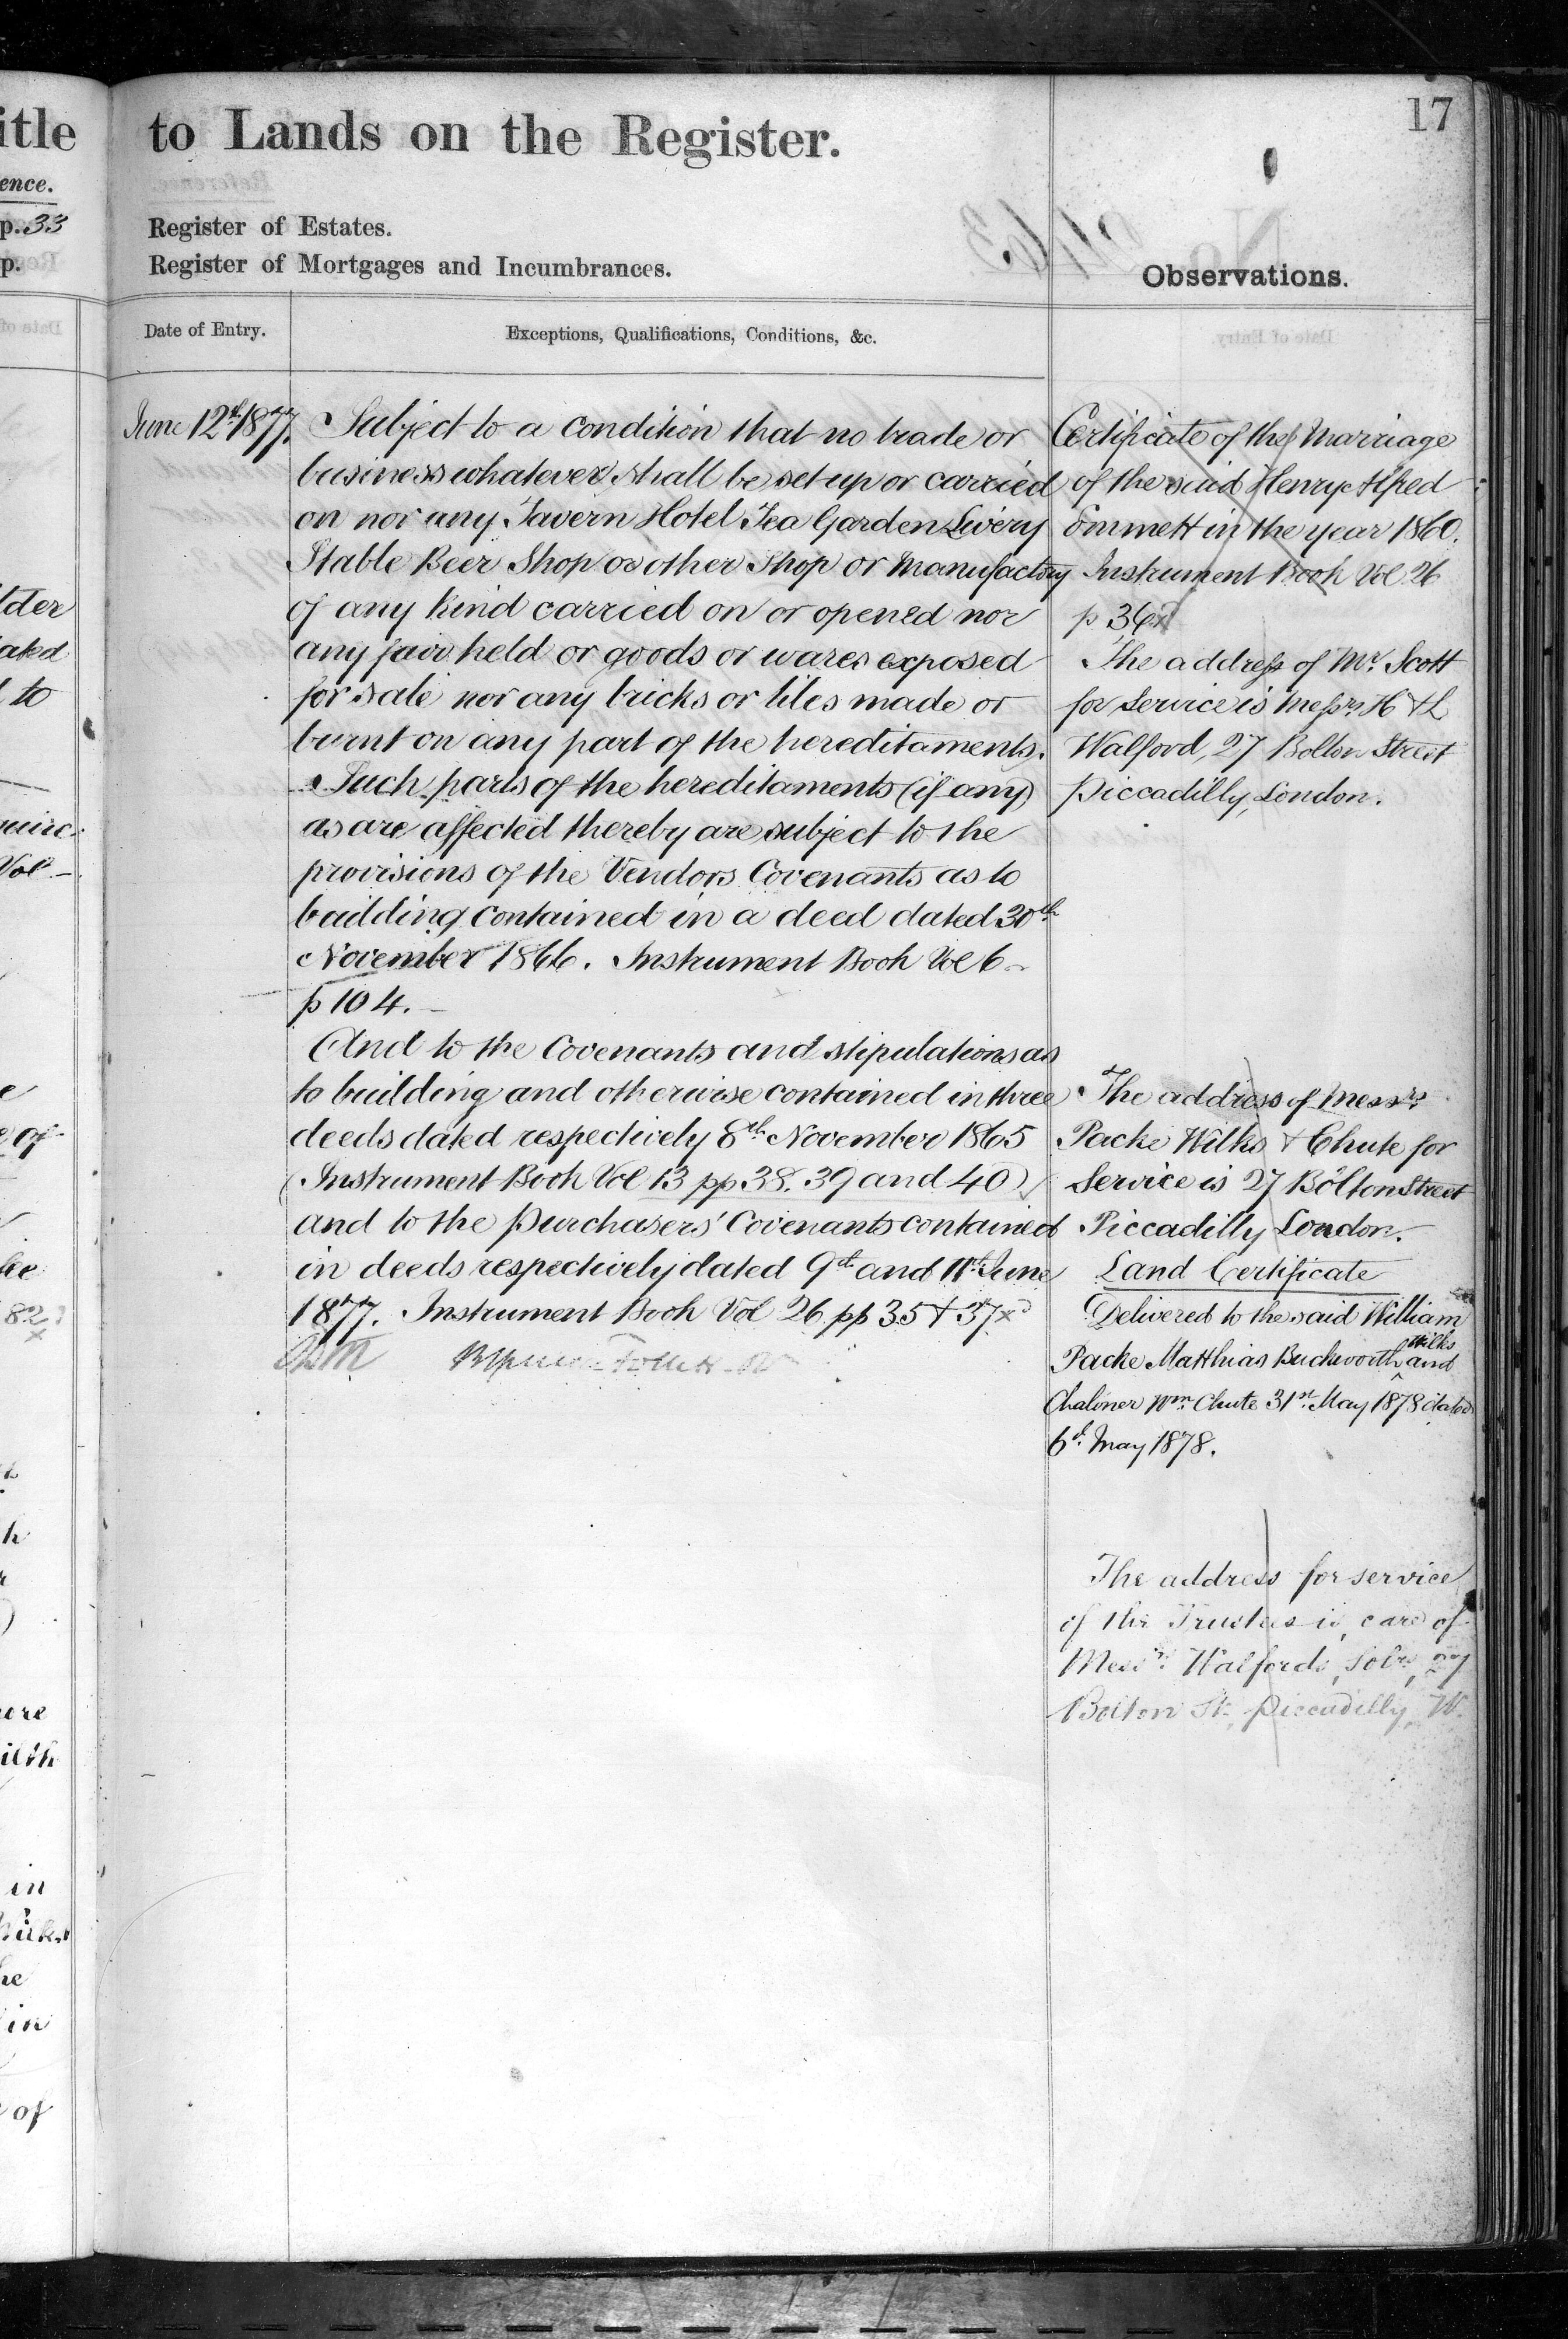 itle
ence.
p. 33
p.
lder
ated
to
Vol
of
82
ore
in
he
in
of
17
to Lands on the Register.
Register of Estates.
Register of Mortgages and Incumbrances.
Observations.
Date of Entry.
Exceptions, Qualifications, Conditions, &c.
June 12th 1877.
Subject to a condition that no trade or
business whatever shall be set up or carried
on nor any Tavern Hotel Tea Garden Livery
Stable Beer Shop or other Shop or Manufactory
of any kind carried on or opened nor
any fair held or goods or wares exposed
for sale nor any bricks or tiles made or
burnt on any part of the hereditaments.
Such parts of the hereditaments (if any)
as are affected thereby are subject to the
provisions of the Vendors Covenants as to
building contained in a deed dated 30th
November 1866. Instrument Book Vol 6
p 104.
And to the Covenants and stipulations as
to building and otherwise contained in three
deeds dated respectively 8th November 1865
(Instrument Book Vol 13 pp 38. 39 and 40)
and to the Purchasers' Covenants contained
in deeds respectively dated 9th and 11th June
1877. Instrument Book Vol 26 pp 35 & 37
Certificate of the Marriage
of the said Henry Alfred
Emmett in the year 1860.
Instrument Book Vol 26
p 36
The address of Mr. Scott
for Service is Messrs H & L
Walford, 27 Bolton Street
Piccadilly, London.
The address of Messrs
Packe Wilks & Chute for
Service is 27 Bolton Street
Piccadilly London.
Land Certificate
Delivered to the said William
Packe Matthias Buckworth Wilks and
Chaloner Wm. Chute 31st May 1878 dated
6th May 1878.
The address for service
of the Trustees is, care of
Messrs. Walfords, Solrs, 27
Bolton St. Piccadilly, W.